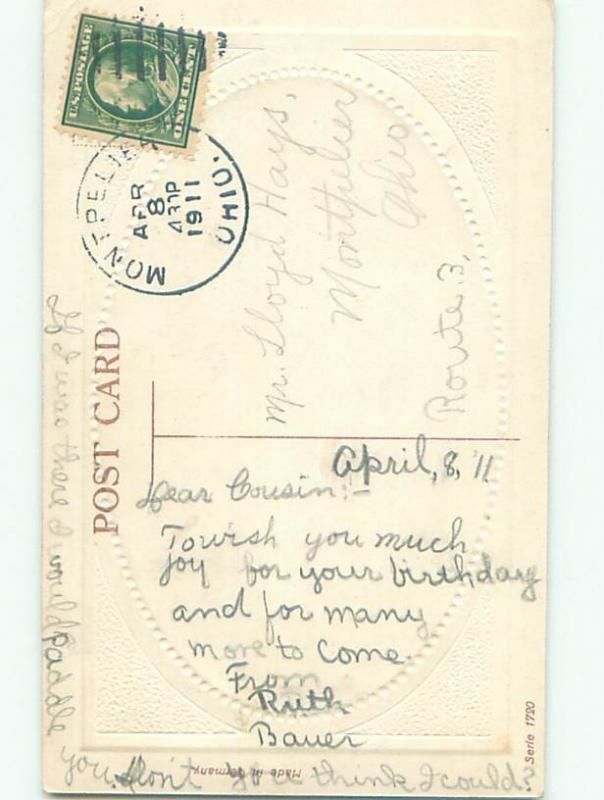 U.S. POSTAGE
ONE CENT
MONTPELIER
OHIO.
APR
8
430P
1911
POST CARD
Mr. Lloyd Hays,
Montpelier
Ohio
Route 3,
April, 8, '11
Dear Cousin:-
To wish you much
joy for your birthday
and for many
more to come.
From
Ruth
Bauer
If I was there I would paddle
you. Don't you think I could?
Made in Germany
Serie 1720